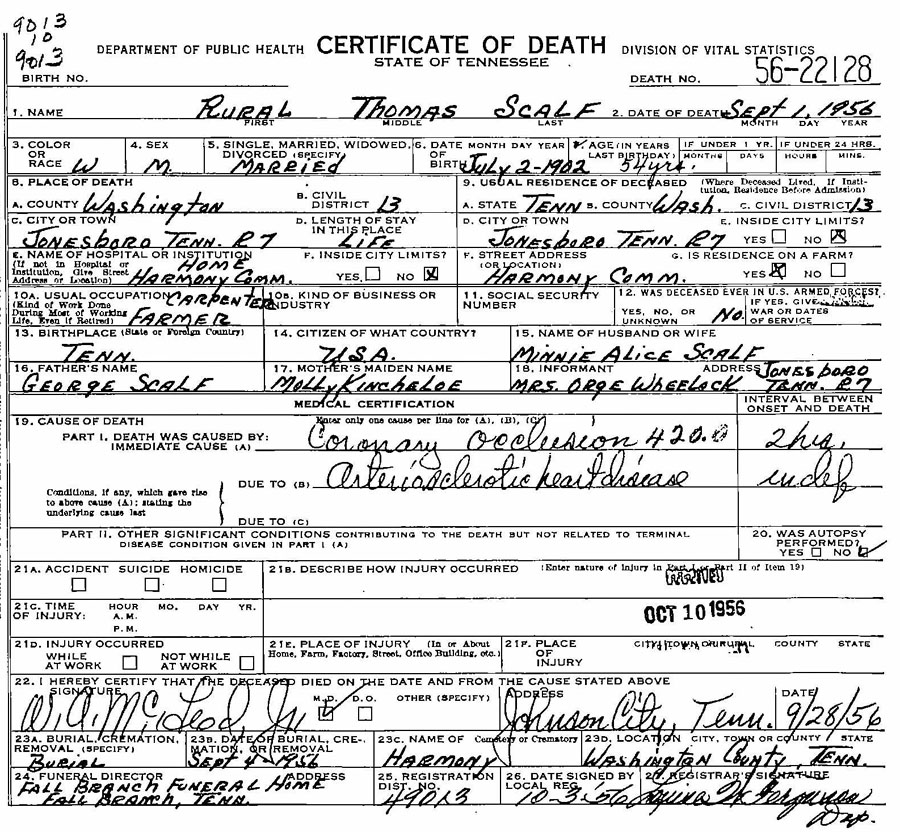 9013
10
9013
DEPARTMENT OF PUBLIC HEALTH CERTIFICATE OF DEATH DIVISION OF VITAL STATISTICS
STATE OF TENNESSEE
BIRTH NO. DEATH NO. 56-22128
1. NAME RURAL THOMAS SCALF 2. DATE OF DEATH SEPT 1, 1956
FIRST MIDDLE LAST MONTH DAY YEAR
3. COLOR OR RACE W 4. SEX M. 5. SINGLE, MARRIED, WIDOWED, DIVORCED (SPECIFY) MARRIED 6. DATE OF BIRTH MONTH DAY YEAR JULY 2-1902 7. AGE (IN YEARS LAST BIRTHDAY) 54 yrs. IF UNDER 1 YR. MONTHS DAYS IF UNDER 24 HRS. HOURS MINS.
8. PLACE OF DEATH 9. USUAL RESIDENCE OF DECEASED (Where Deceased Lived, If Institution, Residence Before Admission)
A. COUNTY WASHINGTON B. CIVIL DISTRICT 13 A. STATE TENN B. COUNTY WASH. C. CIVIL DISTRICT 13
C. CITY OR TOWN JONESBORO TENN. R7 D. LENGTH OF STAY IN THIS PLACE LIFE D. CITY OR TOWN JONESBORO TENN. R7 E. INSIDE CITY LIMITS? YES NO X
E. NAME OF HOSPITAL OR INSTITUTION (If not in Hospital or Institution, Give Street Address or Location) HOME HARMONY COMM. F. INSIDE CITY LIMITS? YES NO X F. STREET ADDRESS (OR LOCATION) HARMONY COMM. G. IS RESIDENCE ON A FARM? YES X NO
10A. USUAL OCCUPATION (Kind of Work Done During Most of Working Life, Even if Retired) CARPENTER FARMER 10B. KIND OF BUSINESS OR INDUSTRY 11. SOCIAL SECURITY NUMBER 12. WAS DECEASED EVER IN U.S. ARMED FORCES? YES, NO, OR UNKNOWN NO IF YES, GIVE WAR OR DATES OF SERVICE
13. BIRTHPLACE (State or Foreign Country) TENN. 14. CITIZEN OF WHAT COUNTRY? U.S.A. 15. NAME OF HUSBAND OR WIFE MINNIE ALICE SCALF
16. FATHER'S NAME GEORGE SCALF 17. MOTHER'S MAIDEN NAME MOLLY KINCHELOE 18. INFORMANT MRS. ORGE WHEELOCK ADDRESS JONESBORO TENN. R7
MEDICAL CERTIFICATION INTERVAL BETWEEN ONSET AND DEATH
19. CAUSE OF DEATH Enter only one cause per line for (A), (B), (C)
PART I. DEATH WAS CAUSED BY:
IMMEDIATE CAUSE (A) Coronary Occlusion 420.0 2 hrs.
DUE TO (B) Arteriosclerotic heart disease indef
Conditions, if any, which gave rise to above cause (A); stating the underlying cause last
DUE TO (C)
PART II. OTHER SIGNIFICANT CONDITIONS CONTRIBUTING TO THE DEATH BUT NOT RELATED TO TERMINAL DISEASE CONDITION GIVEN IN PART I (A) 20. WAS AUTOPSY PERFORMED? YES NO
21A. ACCIDENT SUICIDE HOMICIDE 21B. DESCRIBE HOW INJURY OCCURRED (Enter nature of Injury in Part I or Part II of Item 19)
RECEIVED
21C. TIME OF INJURY: HOUR MO. DAY YR. A.M. P.M. OCT 10 1956
21D. INJURY OCCURRED WHILE AT WORK NOT WHILE AT WORK 21E. PLACE OF INJURY (In or About Home, Farm, Factory, Street, Office Building, etc.) 21F. PLACE OF INJURY CITY, TOWN, OR RURAL COUNTY STATE
22. I HEREBY CERTIFY THAT THE DECEASED DIED ON THE DATE AND FROM THE CAUSE STATED ABOVE
SIGNATURE W. A. McLeod, Jr. M.D. D.O. OTHER (SPECIFY) ADDRESS Johnson City, Tenn. DATE 9/28/56
23A. BURIAL, CREMATION, REMOVAL (SPECIFY) BURIAL 23B. DATE OF BURIAL, CREMATION, OR REMOVAL SEPT 4-1956 23C. NAME OF Cemetery or Crematory HARMONY 23D. LOCATION CITY, TOWN OR COUNTY STATE WASHINGTON COUNTY, TENN.
24. FUNERAL DIRECTOR ADDRESS FALL BRANCH FUNERAL HOME FALL BRANCH, TENN. 25. REGISTRATION DIST. NO. 49013 26. DATE SIGNED BY LOCAL REG. 10-3-56 27. REGISTRAR'S SIGNATURE Ferguson
Dep.